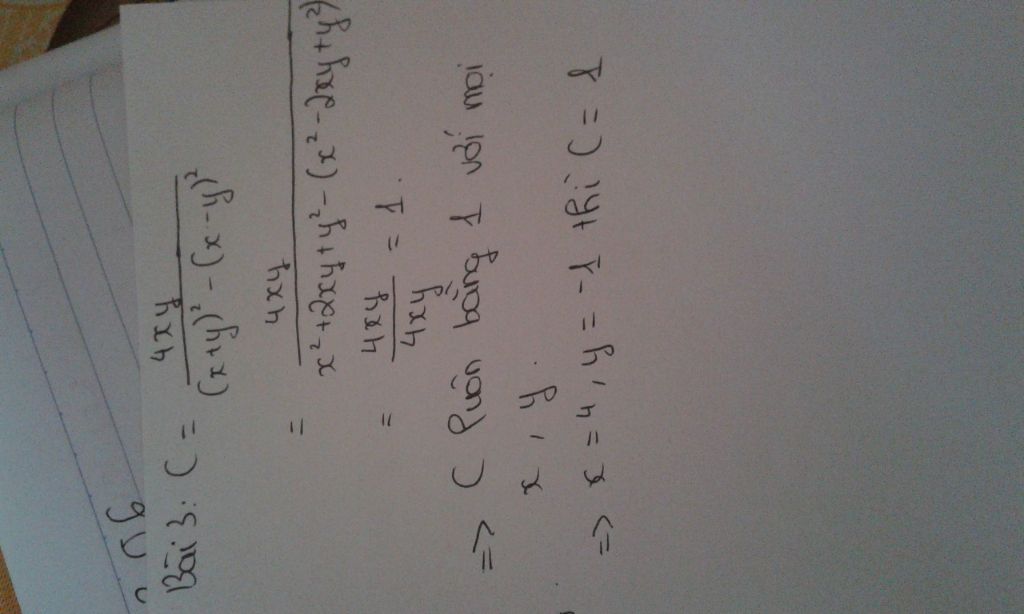 Bài 3: C = 4xy / ((x+y)² - (x-y)²)
= 4xy / (x²+2xy+y² - (x² - 2xy+y²))
= 4xy / 4xy = 1.
=> C luôn bằng 1 với mọi
x, y.
=> x = 4, y = -1 thì C = 1